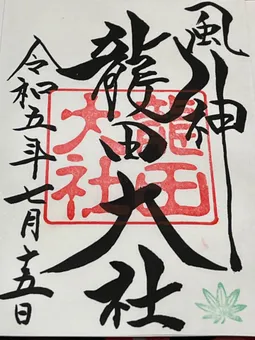 風神
龍田大社
龍田大社
令和五年七月十五日